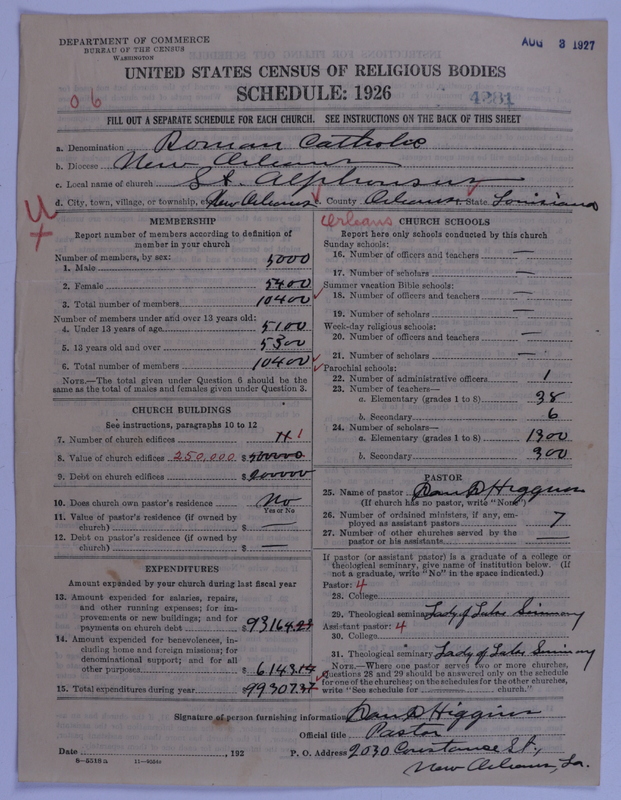 DEPARTMENT OF COMMERCE
BUREAU OF THE CENSUS
WASHINGTON
AUG 3 1927
UNITED STATES CENSUS OF RELIGIOUS BODIES
SCHEDULE: 1926
0 6
4281
FILL OUT A SEPARATE SCHEDULE FOR EACH CHURCH. SEE INSTRUCTIONS ON THE BACK OF THIS SHEET
a. Denomination Roman Catholic
b. Diocese New Orleans
c. Local name of church St. Alphonsus
d. City, town, village, or township, or New Orleans e. County Orleans State Louisiana
Orleans
MEMBERSHIP
Report number of members according to definition of
member in your church
Number of members, by sex:
1. Male 5000
2. Female 5400
3. Total number of members 10400
Number of members under and over 13 years old:
4. Under 13 years of age 5100
5. 13 years old and over 5300
6. Total number of members 10400
NOTE.—The total given under Question 6 should be the
same as the total of males and females given under Question 3.
CHURCH BUILDINGS
See instructions, paragraphs 10 to 12
7. Number of church edifices 1
8. Value of church edifices 250,000 $
9. Debt on church edifices $
10. Does church own pastor's residence No
Yes or No
11. Value of pastor's residence (if owned by
church) $ —
12. Debt on pastor's residence (if owned by
church) $ —
EXPENDITURES
Amount expended by your church during last fiscal year
13. Amount expended for salaries, repairs,
and other running expenses; for im-
provements or new buildings; and for
payments on church debt $ 93164.23
14. Amount expended for benevolences, in-
cluding home and foreign missions; for
denominational support; and for all
other purposes $ 6143.14
15. Total expenditures during year 99307.37
CHURCH SCHOOLS
Report here only schools conducted by this church
Sunday schools:
16. Number of officers and teachers —
17. Number of scholars —
Summer vacation Bible schools:
18. Number of officers and teachers —
19. Number of scholars —
Week-day religious schools:
20. Number of officers and teachers —
21. Number of scholars —
Parochial schools:
22. Number of administrative officers 1
23. Number of teachers—
a. Elementary (grades 1 to 8) 38
b. Secondary 6
24. Number of scholars—
a. Elementary (grades 1 to 8) 1300
b. Secondary 300
PASTOR
25. Name of pastor Dan D Higgins
(If church has no pastor, write "None")
26. Number of ordained ministers, if any, em-
ployed as assistant pastors 7
27. Number of other churches served by the
pastor or his assistants —
If pastor (or assistant pastor) is a graduate of a college or
theological seminary, give name of institution below. (If
not a graduate, write "No" in the space indicated.)
Pastor: 4
28. College
29. Theological seminary Lady of Lakes Seminary
Assistant pastor: 4
30. College
31. Theological seminary Lady of Lakes Seminary
NOTE.—Where one pastor served two or more churches,
Questions 28 and 29 should be answered only on the schedule
for one of the churches; on the schedules for the other churches,
write "See schedule for church."
Signature of person furnishing information Dan D Higgins
Official title Pastor
Date , 192
P. O. Address 2030 Constance St.,
New Orleans, La.
8—5518 a